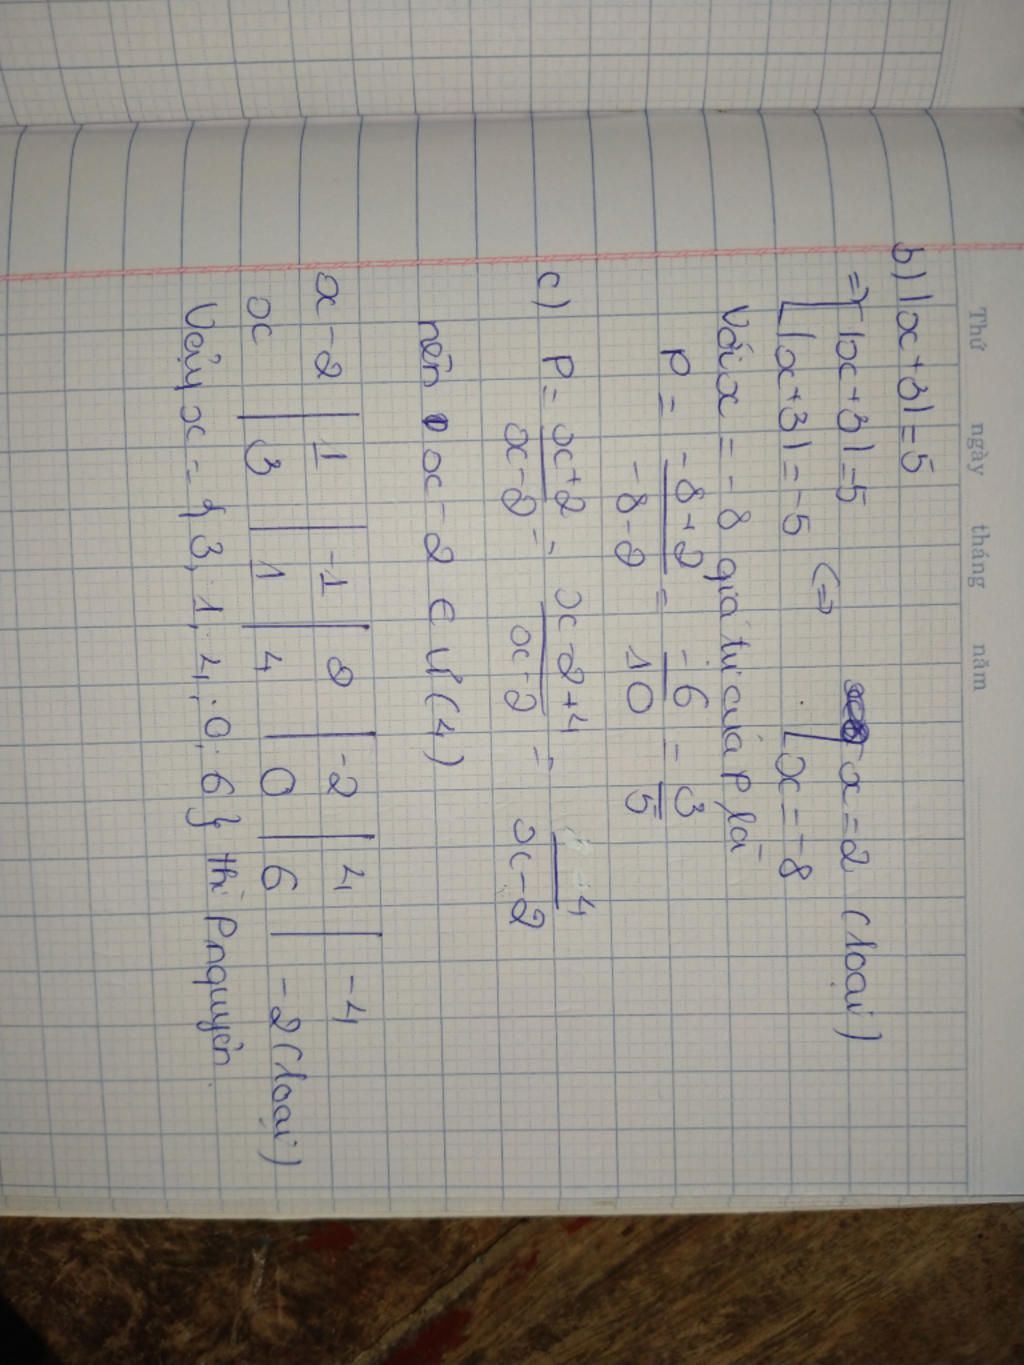 Thứ ngày tháng năm
b) |x+3|=5
=> [ |x+3|=5 <=> [ x=2 (loại)
[ |x+3|=-5 [ x=-8
Với x=-8 giá trị của P là
P = -8+2 / -8-2 = -6 / 10 = 3 / 5
c) P = x+2 / x-2 = x-2+4 / x-2 = 4 / x-2
nên x-2 ∈ Ư(4)
x-2 | 1 | -1 | 2 | -2 | 4 | -4
x | 3 | 1 | 4 | 0 | 6 | -2 (loại)
Vậy x = { 3, 1, 4, 0, 6 } thì P nguyên